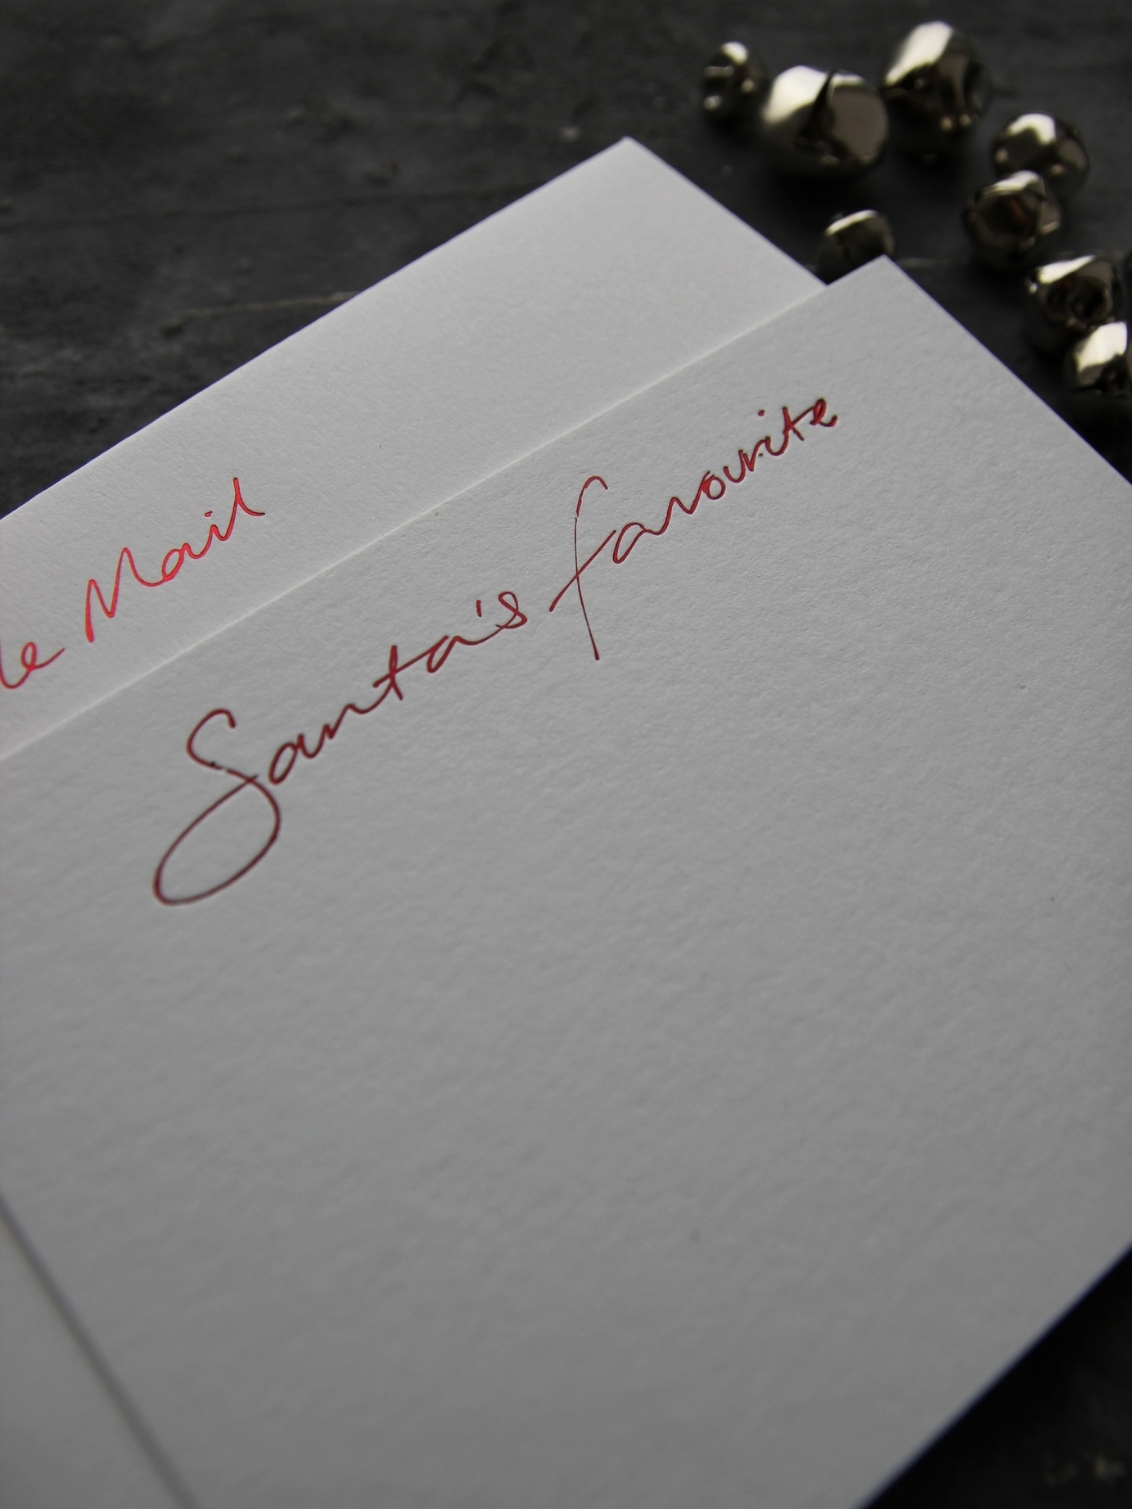 le Mail
Santa's favourite